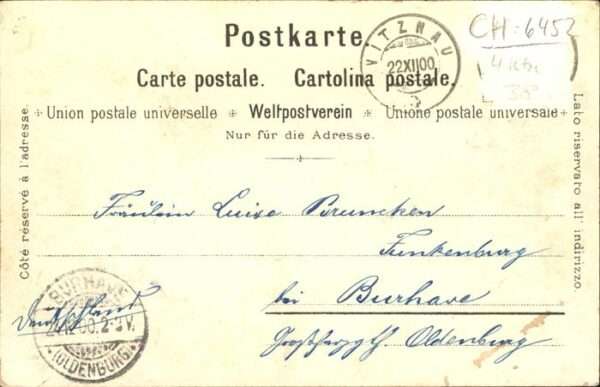 Postkarte.
CH: 6452
VITZNAU
22.XII.00.
Carte postale. Cartolina postale.
Union postale universelle Weltpostverein Unione postale universale
Nur für die Adresse.
Côté réservé à l'adresse.
Lato riservato all' indirizzo.
Fräulein Luise Bruncken
Funkenburg
bei Burhave
Großherzgth. Oldenburg
Deutschland
BURHAVE
(OLDENBURG)